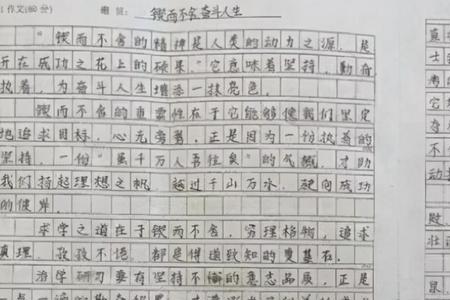 作文(60分) 题目: 锲而不舍奋斗人生
"锲而不舍的精神是人类的动力之源,是
开在成功之花上的硕果。"它意味着坚持,勤奋
执着,为奋斗人生增添一抹亮色。
锲而不舍的重要性在于它能够使我们坚定
地追求目标,心无旁骛,正是因为一份执着的
坚持,一份"虽千万人吾往矣"的气概,才助
我们扬起理想之帆,越过千山万水,驶向成功
的彼岸。
求学之道在于锲而不舍,穷理格物,追求
真理,孜孜不倦,都是得道致知的奠基石。
治学研习要有坚持不懈的意志品质,正是
真
士
考
它
夺
不
动
殿
壮